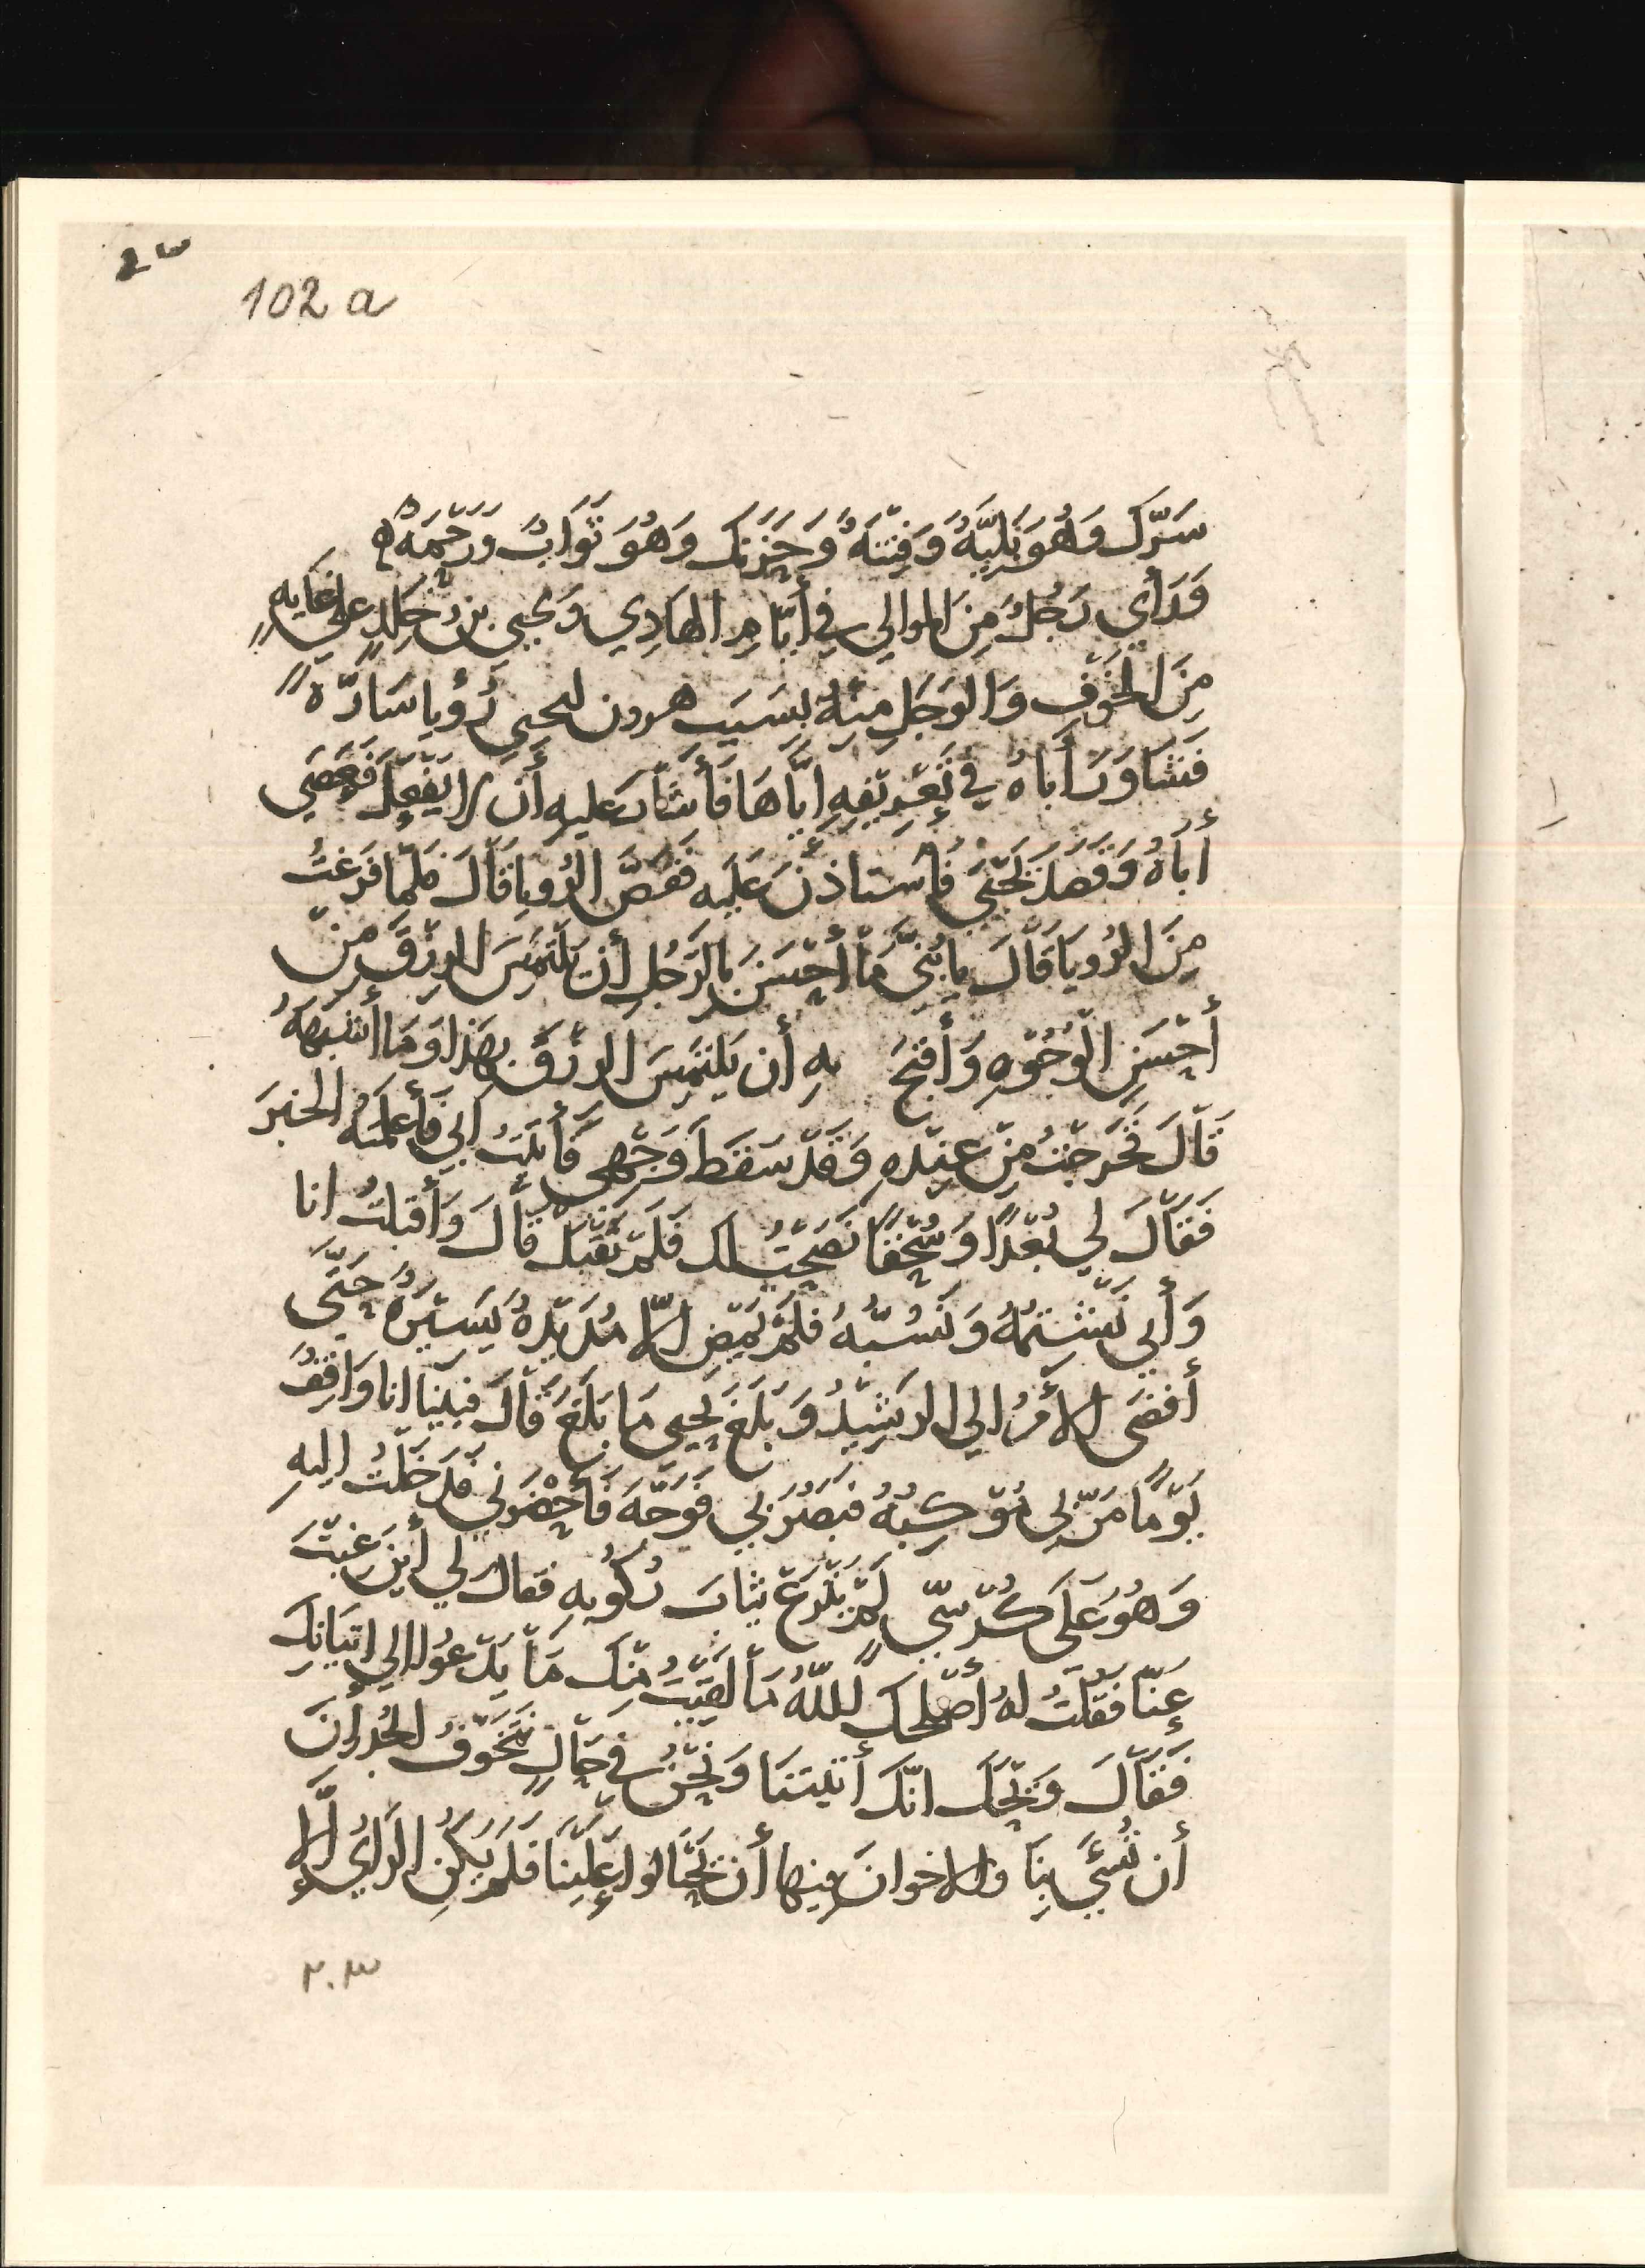 102 a
سَرَّكَ وَهُوَ بَلِيَّةٌ وَفِتْنَةٌ وَحَزَنَكَ وَهُوَ ثَوَابٌ وَرَحْمَةٌ
وَرَأَى رَجُلٌ مِنَ الموالي في أيَّامِ الهَادِي وَيحيى بنُ خَالدٍ على غَايةٍ
مِنَ الخَوْفِ وَالوَجَلِ مِنْهُ بِسَبَبِ هرون ليحيى رُؤيا سَارَّةً
فَشَاوَرَ أَباهُ في تَعْرِيفِهِ ايَّاهَا فَأَشَارَ عليهِ أَن لا يَفْعَلَ فَعَصَى
أَبَاهُ وَقَصَدَ يَحْيَى فَاستاذَنَ عَلَيه فَقَصَّ الرُويا قَالَ فلمّا فَرَغْتُ
مِنَ الرُويَا قَالَ يا بُنَيَّ مَا أَحْسَنَ بِالرَجُلِ أَن يَلْتَمِسَ الرِزْقَ مِنْ
أَحْسَنِ الوُجُوهِ وَأَقبَحَ بِهِ أَن يَلتَمِسَ الرِزْقَ بِهَذا وَمَا أَشْبَهَهُ
قَالَ فَخَرَجْتُ مِنْ عِنْدِهِ وَقَدْ سَقَطَ وَجْهِي فَأَتَيْتُ ابي فَأَعلَمتُهُ الخبَرَ
فَقَالَ لي بُعْدًا وَسُحْقًا نَصَحْتُ لك فَلَمْ تَقْبَلْ قَالَ وَأَقبَلتُ انا
وَأَبي نَشْتِمُهُ وَنَسُبُّهُ فَلَمْ يَمْضِ الّا مُدَيْدةٌ يَسِيْرَةٌ حَتَّى
أَفضَى الأَمْرُ الي الرَشِيْدِ وَبَلَغَ يحيى مَا بَلَغَ قَالَ فبَيْنَا انا وَاقِفٌ
يَوْمًا مَرَّ بِي مَوْكِبُهُ فبَصُرَ بي فَوَجَّهَ فَأَحْضَرَنِي فَدَخَلْتُ اليهِ
وَهُوَ عَلَى كُرْسيٍّ لَمْ يَنْزَعْ ثيابَ رُكُوبِهِ فقال لي أَينَ غِبْتَ
عنّا فَقُلْتُ لهُ أَصْلَحَكَ اللّهُ مَا لَقِيْتُ مِنْكَ مَا يَدْعُوا الي إتيانِكَ
فَقَالَ وَيْحَكَ انّكَ أَتَيتَنَا وَنَحْنُ في حَالٍ نَتَخَوَّفُ الجُدرَانَ
أَن تُسْئَ بِنَا والاخوانَ فيها أَن يَحْتَالوا عَلَيْنَا فَلَمْ يَكُنِ الرَايُ إلَّا
٢٠٣